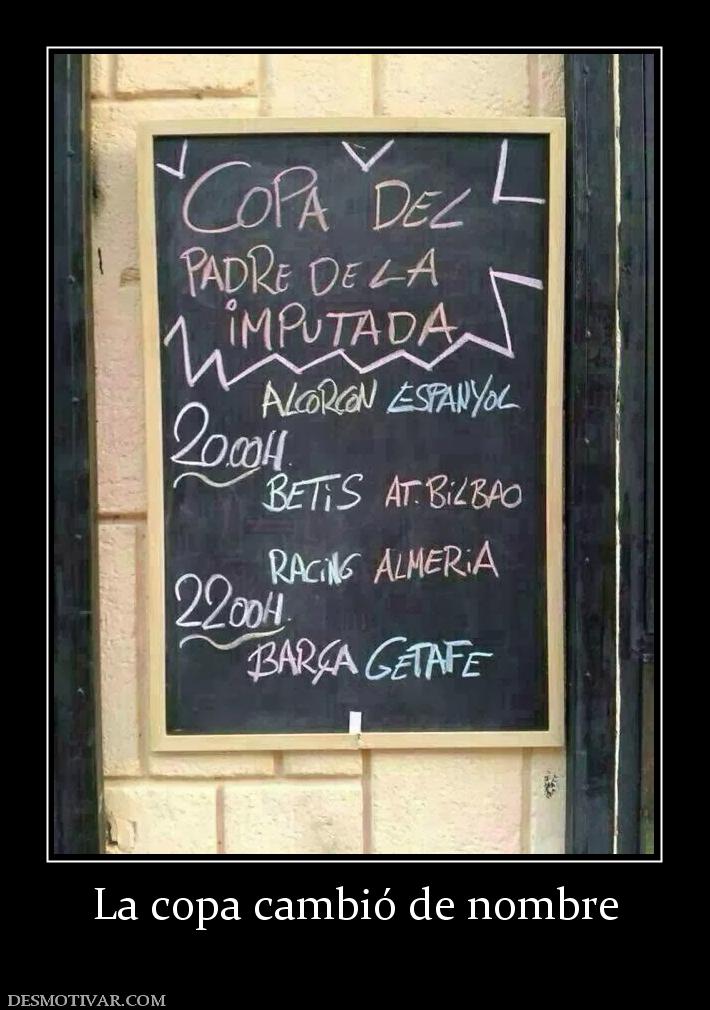 COPA DEL
PADRE DE LA
iMPUTADA
ALCORCON ESPANYOL
20.00H.
BETiS AT. BiLBAO
RACiNG ALMERiA
22 00H.
BARÇA GETAFE
La copa cambió de nombre
DESMOTIVAR.COM